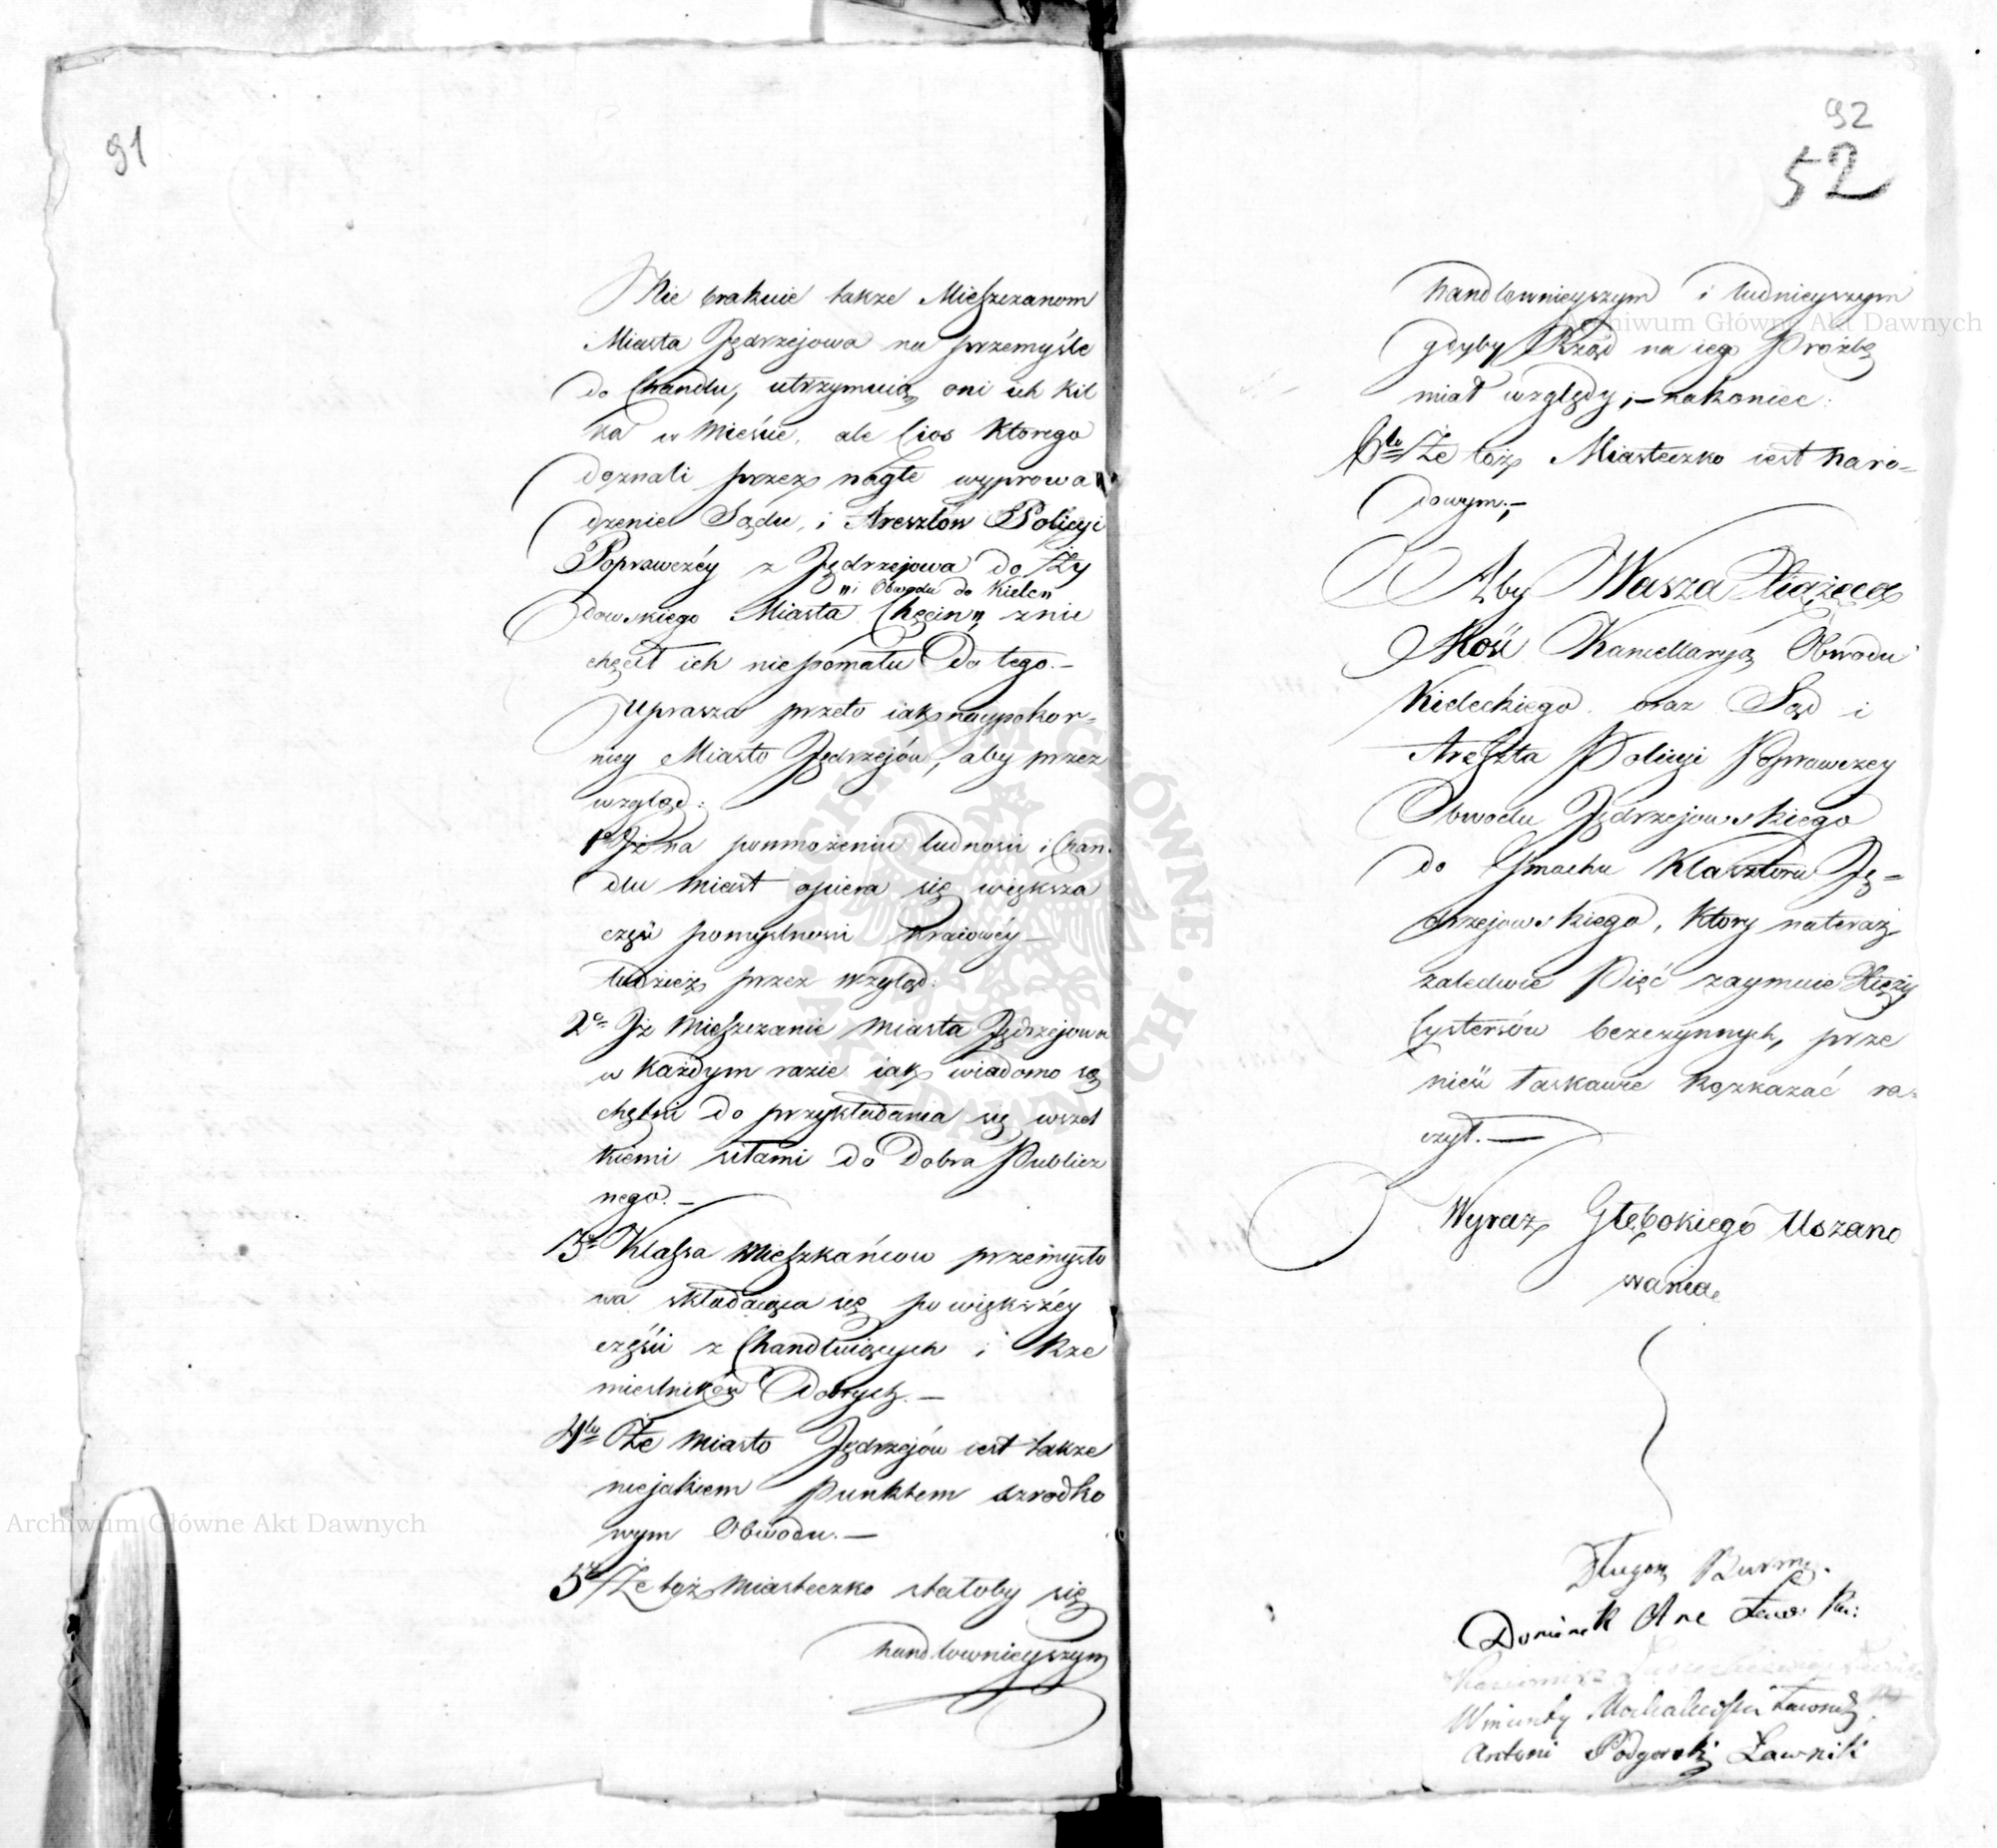 91
Nie brakuie także Mieszczanom
Miasta Jędrzejowa na przemyśle
do Chandlu, utrzymuią oni ich kil
ka w Mieście, ale Cios ktorego
doznali przez nagłe wyprowa
dzenie Sądu, i Aresztów Policyi
Poprawczéy z Jędrzejowa do Ży
"i Obwodu do Kielc"
dowskiego Miasta Chęcin" znie
chęcił ich niepomału do tego.—
Uprasza przeto iak naypokor-
niey Miasto Jędrzejów, aby przez
wzgląd:
1o Iż na pomnożeniu ludności i Chan-
dlu Miast opiera się większa
część pomyślności Kraiowéy—
tudzież przez wzgląd:
2o Iż Mieszczanie Miasta Jędrzejowa
w każdym razie iak wiadomo są
chętni do przykładania się wszel
kiemi siłami do Dobra Publicz
nego.—
3o Klassa Mieszkańcow przemysło
wa składaiąca się po większéy
części z Chandluiących i Rze
mieślników Dobrych.—
4to Że Miasto Jędrzejów iest także
niejakiem Punktem szrodko
wym Obwodu.—
5to Że toż Miasteczko stałoby się
handlownieyszym
92
52
handlownieyszym i ludnieyszym
gdyby Rząd na iego Proźbę
miał względy;—nakoniec:
6to Że toż Miasteczko iest Naro-
dowym;—
Aby Wasza Xiążęca
Mość Kancellaryą Obwodu
Kieleckiego oraz Sąd i
Areszta Policyi Poprawczey
Obwodu Jędrzejowskiego
do Gmachu Klasztoru Ję-
drzejowskiego, ktory nateraz
zaledwie Pięć zaymuie Xięży
Cystersów bezczynnych, prze
nieść łaskawie Rozkazać ra-
czył.—
Wyraz Głębokiego Uszano
wania
Długosz Burm.
Dominik
Wincenty Ławnik
Antoni Podgorski Ławnik
Archiwum Główne Akt Dawnych
Archiwum Główne Akt Dawnych
ARCHIWUM GŁÓWNE AKT DAWNYCH